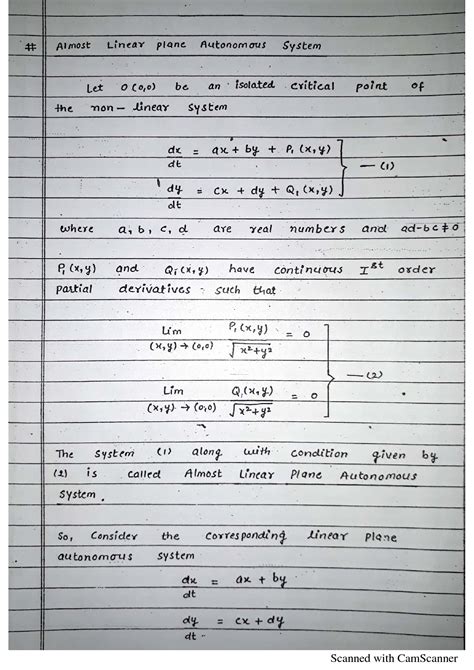 # Almost Linear plane Autonomous System
Let O(0,0) be an isolated critical point of
the non-linear system
dx/dt = ax + by + P₁(x,y)
dy/dt = cx + dy + Q₁(x,y) } — (1)
where a, b, c, d are real numbers and ad-bc ≠ 0
P₁(x,y) and Q₁(x,y) have continuous Iˢᵗ order
partial derivatives such that
Lim (x,y) → (0,0) P₁(x,y)/√(x²+y²) = 0
Lim (x,y) → (0,0) Q₁(x,y)/√(x²+y²) = 0 } — (2)
The system (1) along with condition given by
(2) is called Almost Linear Plane Autonomous
System.
So, Consider the corresponding linear plane
autonomous system
dx/dt = ax + by
dy/dt = cx + dy
Scanned with CamScanner